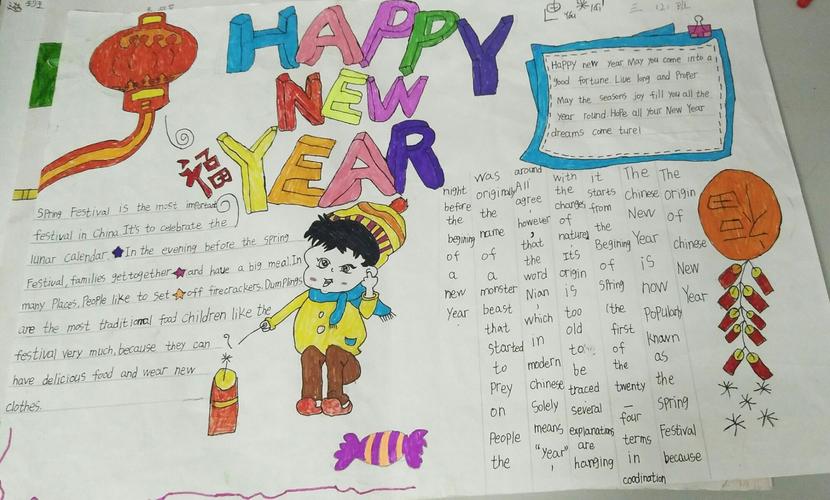 HAPPY
NEW
YEAR
福
Happy new year May you come into a
good fortune. Live long and Proper
May the seasons joy fill you all the
year round Hope all your New Year
dreams come ture!
Spring Festival is the most important
festival in China. It's to celebrate the
lunar calendar. In the evening before the spring
Festival, families get together and have a big meal. In
many Places, People like to Set off firecrackers. Dumplings
are the most traditional food Children like the
festival very much, because they can
have delicious food and wear new
clothes.
The origin of chinese New Year
The Chinese New Year iS now Popularly known as the Spring Festival because
it starts from the Begining of spring (the first of the twenty — four terms in coodination
with the changes of nature) Its origin is too old to be traced several explanations are hanging
around All agree, however, that the word Nian which in modern Chinese Solely means "Year",
was originally the name of a monster beast that started to Prey on People the
night before the begining of a new Year.